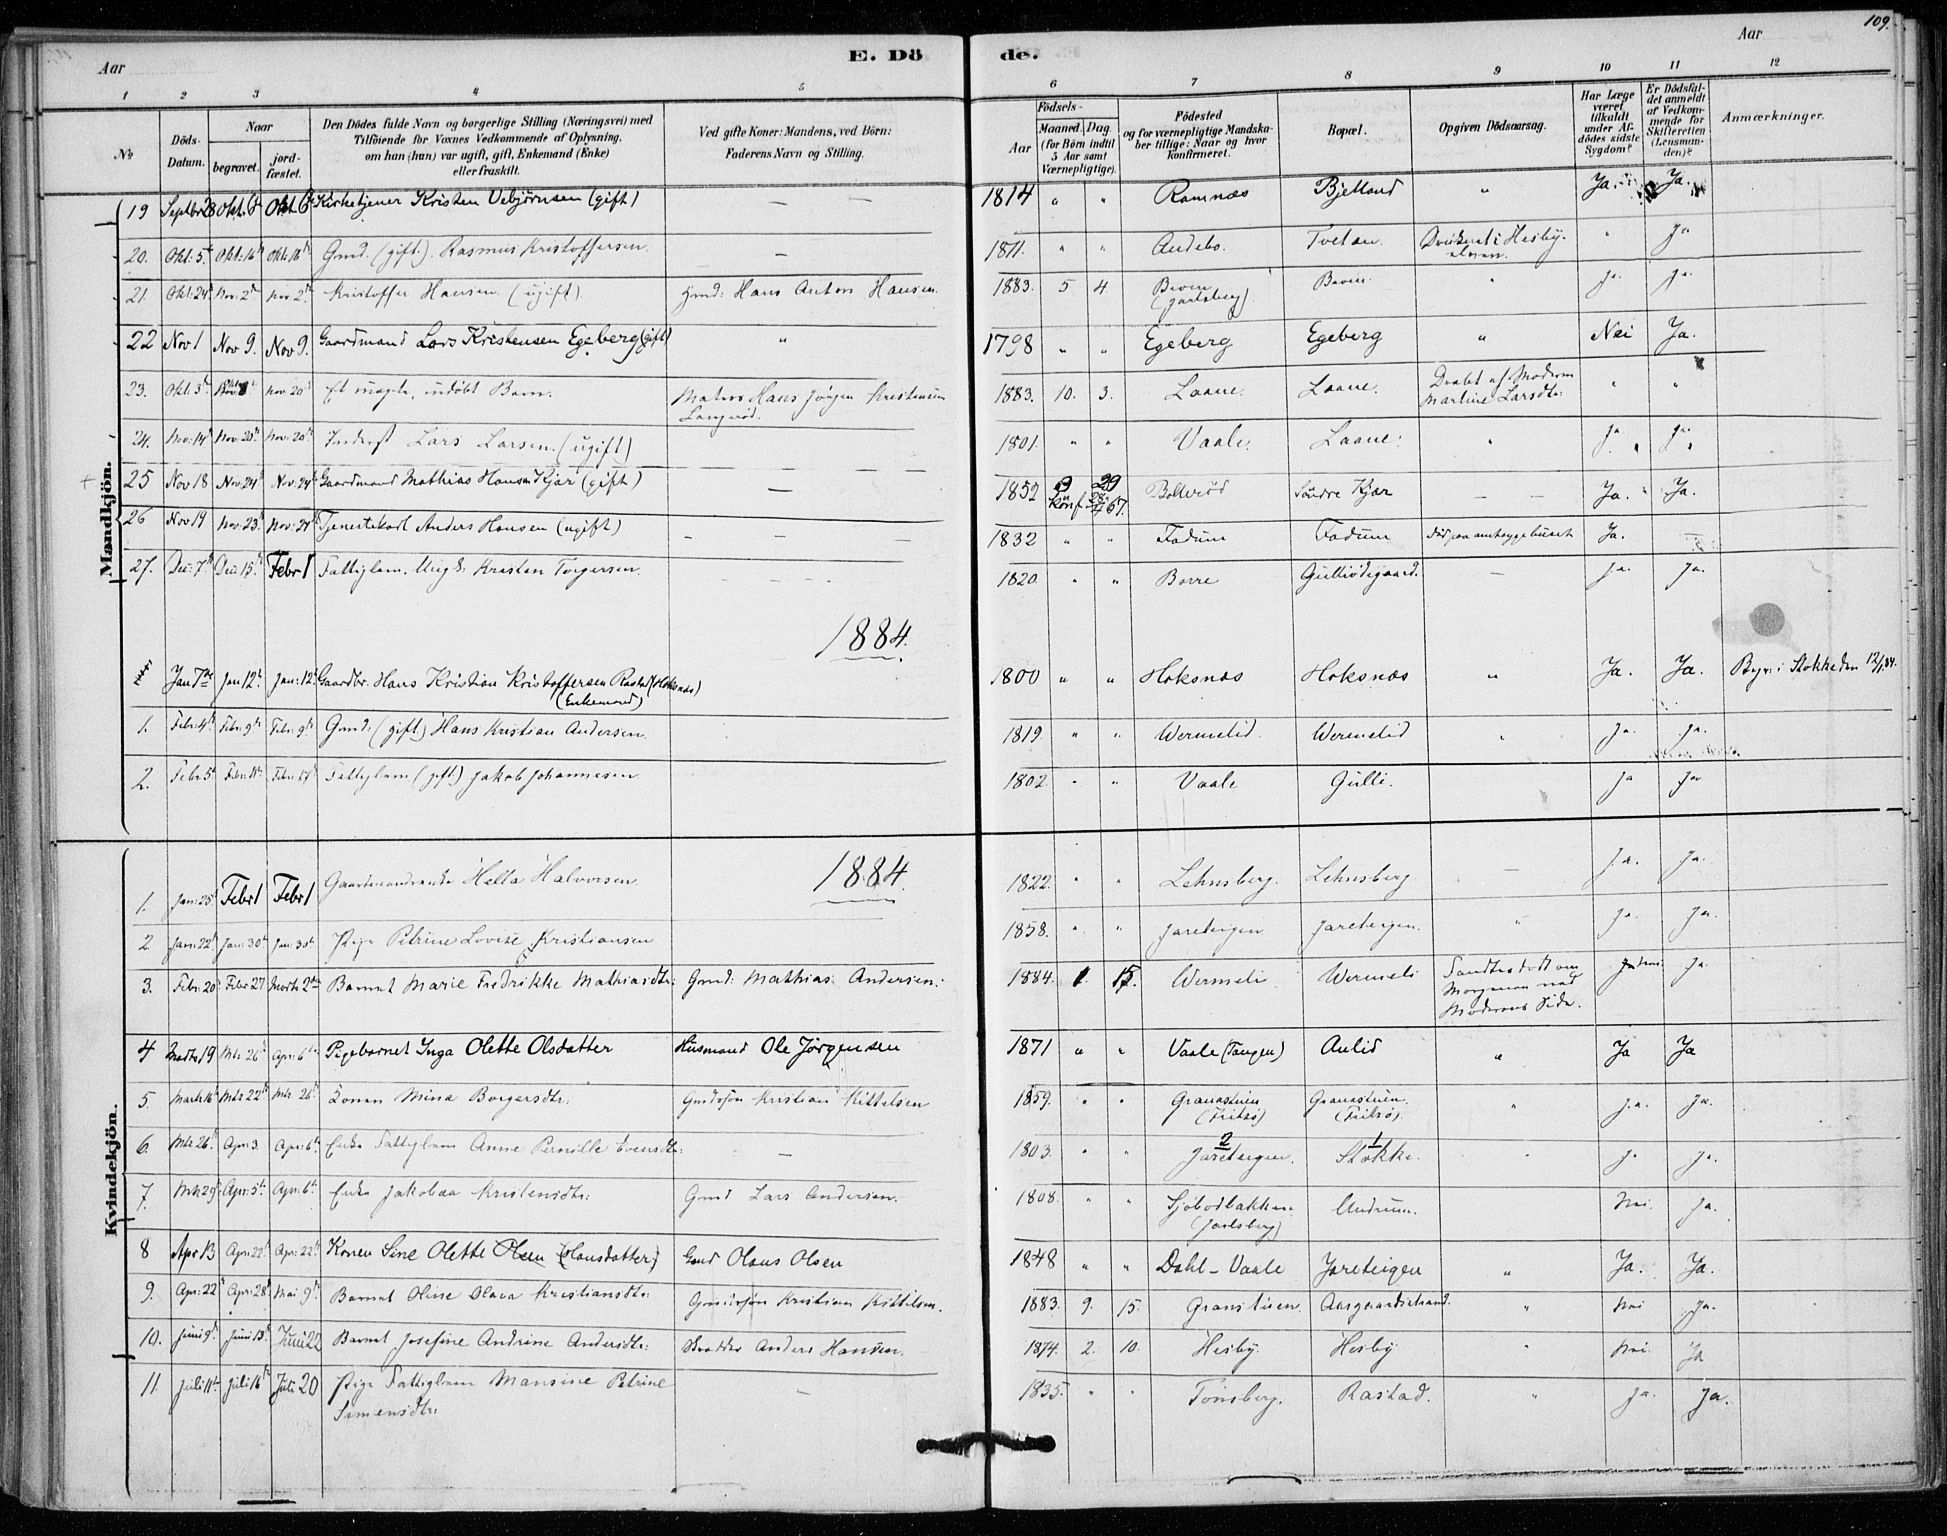 109.
Aar
E. Dö
de.
Aar
1 2 3 4 5 6 7 8 9 10 11 12
No
Döds-Datum.
Naar
begravet.
jord-fæstet.
Den Dödes fulde Navn og borgerlige Stilling (Næringsvei) med
Tilföiende for Voxnes Vedkommende af Oplysning,
om han (hun) var ugift, gift, Enkemand (Enke)
eller fraskilt.
Ved gifte Koner: Mandens, ved Börn:
Faderens Navn og Stilling.
Födsels-
Aar
Maaned. Dag
(for Börn indtil
5 Aar samt
Værnepligtige).
Födested
og for værnepligtige Mandska-
ber tillige: Naar og hvor
konfirmeret.
Bopæl.
Opgiven Dödsaarsag.
Har Læge
været
tilkaldt
under Af-
dödes sidste
Sygdom?
Er Dödsfal-
det anmeldt
af Vedkom-
mende for
Skifteretten
(Lensman-
den)?
Anmærkninger.
Mandkjön.
19 Septbr 28 Okt. 6 Okt 6 Kirketjener Kristen Vebjörnsen (gift) — — 1814 " " Ramnæs Bjelland " Ja. Ja.
20. Okt: 5. Okt: 16 Okt: 16 Gmd. (gift). Rasmus Kristoffersen. — 1811. " " Andebo. Tvetan. Druknet i Hesby-elven. " Ja
21. Okt: 24 Nov: 2 Nov 2 Kristoffer Hansen. (ugift). Gmd: Hans Anton Hansen. 1883. 5 4. Boven (Jarlsberg) Boven. " Ja. Ja.
22 Nov 1 Nov 9. Nov 9. Gaardmand Lars Kristensen Egeberg (gift) " 1798 " " Egeberg Egeberg " Nei Ja.
23. Okt: 3 Nov 20 Et uægte, udöbt Barn. Matros Hans Jörgen Kristensen Langeröd. 1883. 10. 3. Laane. Laane. Dræbt af Moderen Martine Larsdtr: " "
24. Nov: 14 Nov: 20 Nov: 20 Inderst Lars Larsen. (ugift) 1801. " " Vaale. Laane. " Ja Ja
25 Nov 18 Nov: 24 Nov: 24 Gaardmand Mathias Hansen Kjær (gift) — 1852 29 Konf. 67. Bolleröd Söndre Kjær — Ja. Ja.
26 Nov 19 Nov: 23 Nov: 24 Tjenestekarl Anders Hansen (ugift) — — — 1832 " " Fadum Fadum Död paa amtssygehuset Ja.
27. Dec: 7 Dec: 15 Febr 1 Fattiglem. Ungk: Kristen Torgersen. 1820. " " Borre Gulliödegaard. — Ja. Ja.
1884.
Jan 7de Jan 12. Jan: 12. Gaardbr. Hans Kristian Kristoffersen Rastad (Hoksnæs)
(Enkemand) 1800 " " Hoksnæs Hoksnæs " Ja. Ja. Begr. i Stokke den 12/1 84.
1. Febr: 4 Febr: 9 Febr: 9 Gmd: (gift) Hans Kristian Andersen. 1819 " " Wermelid. Wermelid " Ja. Ja.
2. Febr: 5 Febr: 11 Febr: 17 Fattiglem (gift) Jakob Johannesen 1802 " " Vaale Gulli. Ja Ja
Kvindekjön.
1884.
1. Jan: 25 Febr 1 Febr 1 Gaardmandsenke Hella Halvorsen. 1822. " " Lehnsberg. Lehnsberg — Ja. Ja.
2. Jan: 22 Jan: 30 Jan: 30 Pige Petrine Lovise Kristiansen 1858. " " Jareteigen Jareteigen. " Ja. Ja.
3. Febr: 20 Febr 27 Marts 2 Barnet Marie Fredrikke Mathiasdtr: Gmd: Mathias Andersen. 1884. 1. 15. Wermeli Wermeli Fandtes död om Morgenen ved Moderens Side. Nei. Ja.
4 Marts 19 Mts 26 Apr: 6 Pigebarnet Inga Olette Olsdatter Husmand Ole Jørgensen 1871 " " Vaale (Tangen) Aulid " Ja Ja
5. Marts 16 Mts 22 Mts 26 Konen Mina Borgersdtr: Gmdsøn Kristian Kittelsen 1859. " " Granastuen (Fritzö) Granastuen. (Fritzö). " Ja. Ja.
6. Mts 26. Apr: 3. Apr: 6 Enke Fattiglem Anne Pernille Evensdtr: — — 1803. " " 2 Jareteigen. 1 Stokke. " Ja Ja.
7. Mts 29 Apr: 5 Apr: 6 Enke Jakobea Kristensdtr: Gmd Lars Andersen. 1808. " " Sjöbodbakken (Jarlsberg) Undrum. Nei. Ja.
8 Apr 13 Apr: 22 Apr: 22 Konen Sine Olette Olsen (Hansdatter) Gmd Olaus Olsen 1848 " " Dahl - Vaale Jareteigen " Ja. Ja.
9. Apr: 22 Apr: 28 Mai 9 Barnet Oline Olava Kristiansdtr: Gmdssøn Kristian Kittelsen. 1883. 9. 15. Granstuen. Aasgaardstrand. " Nei Ja.
10. Juni 9 Juni 13 Juni 22 Barnet Josefine Andrine Andersdtr: Skrædder Anders Hansen. 1874. 2. 10. Hesby. Hesby " Nei. Ja
11. Juli 11 Juli 16 Juli 20 Pige Fattiglem Mansine Petrine
Simensdtr: — 1835. " " Tönsberg. Rastad. " Ja. Ja.